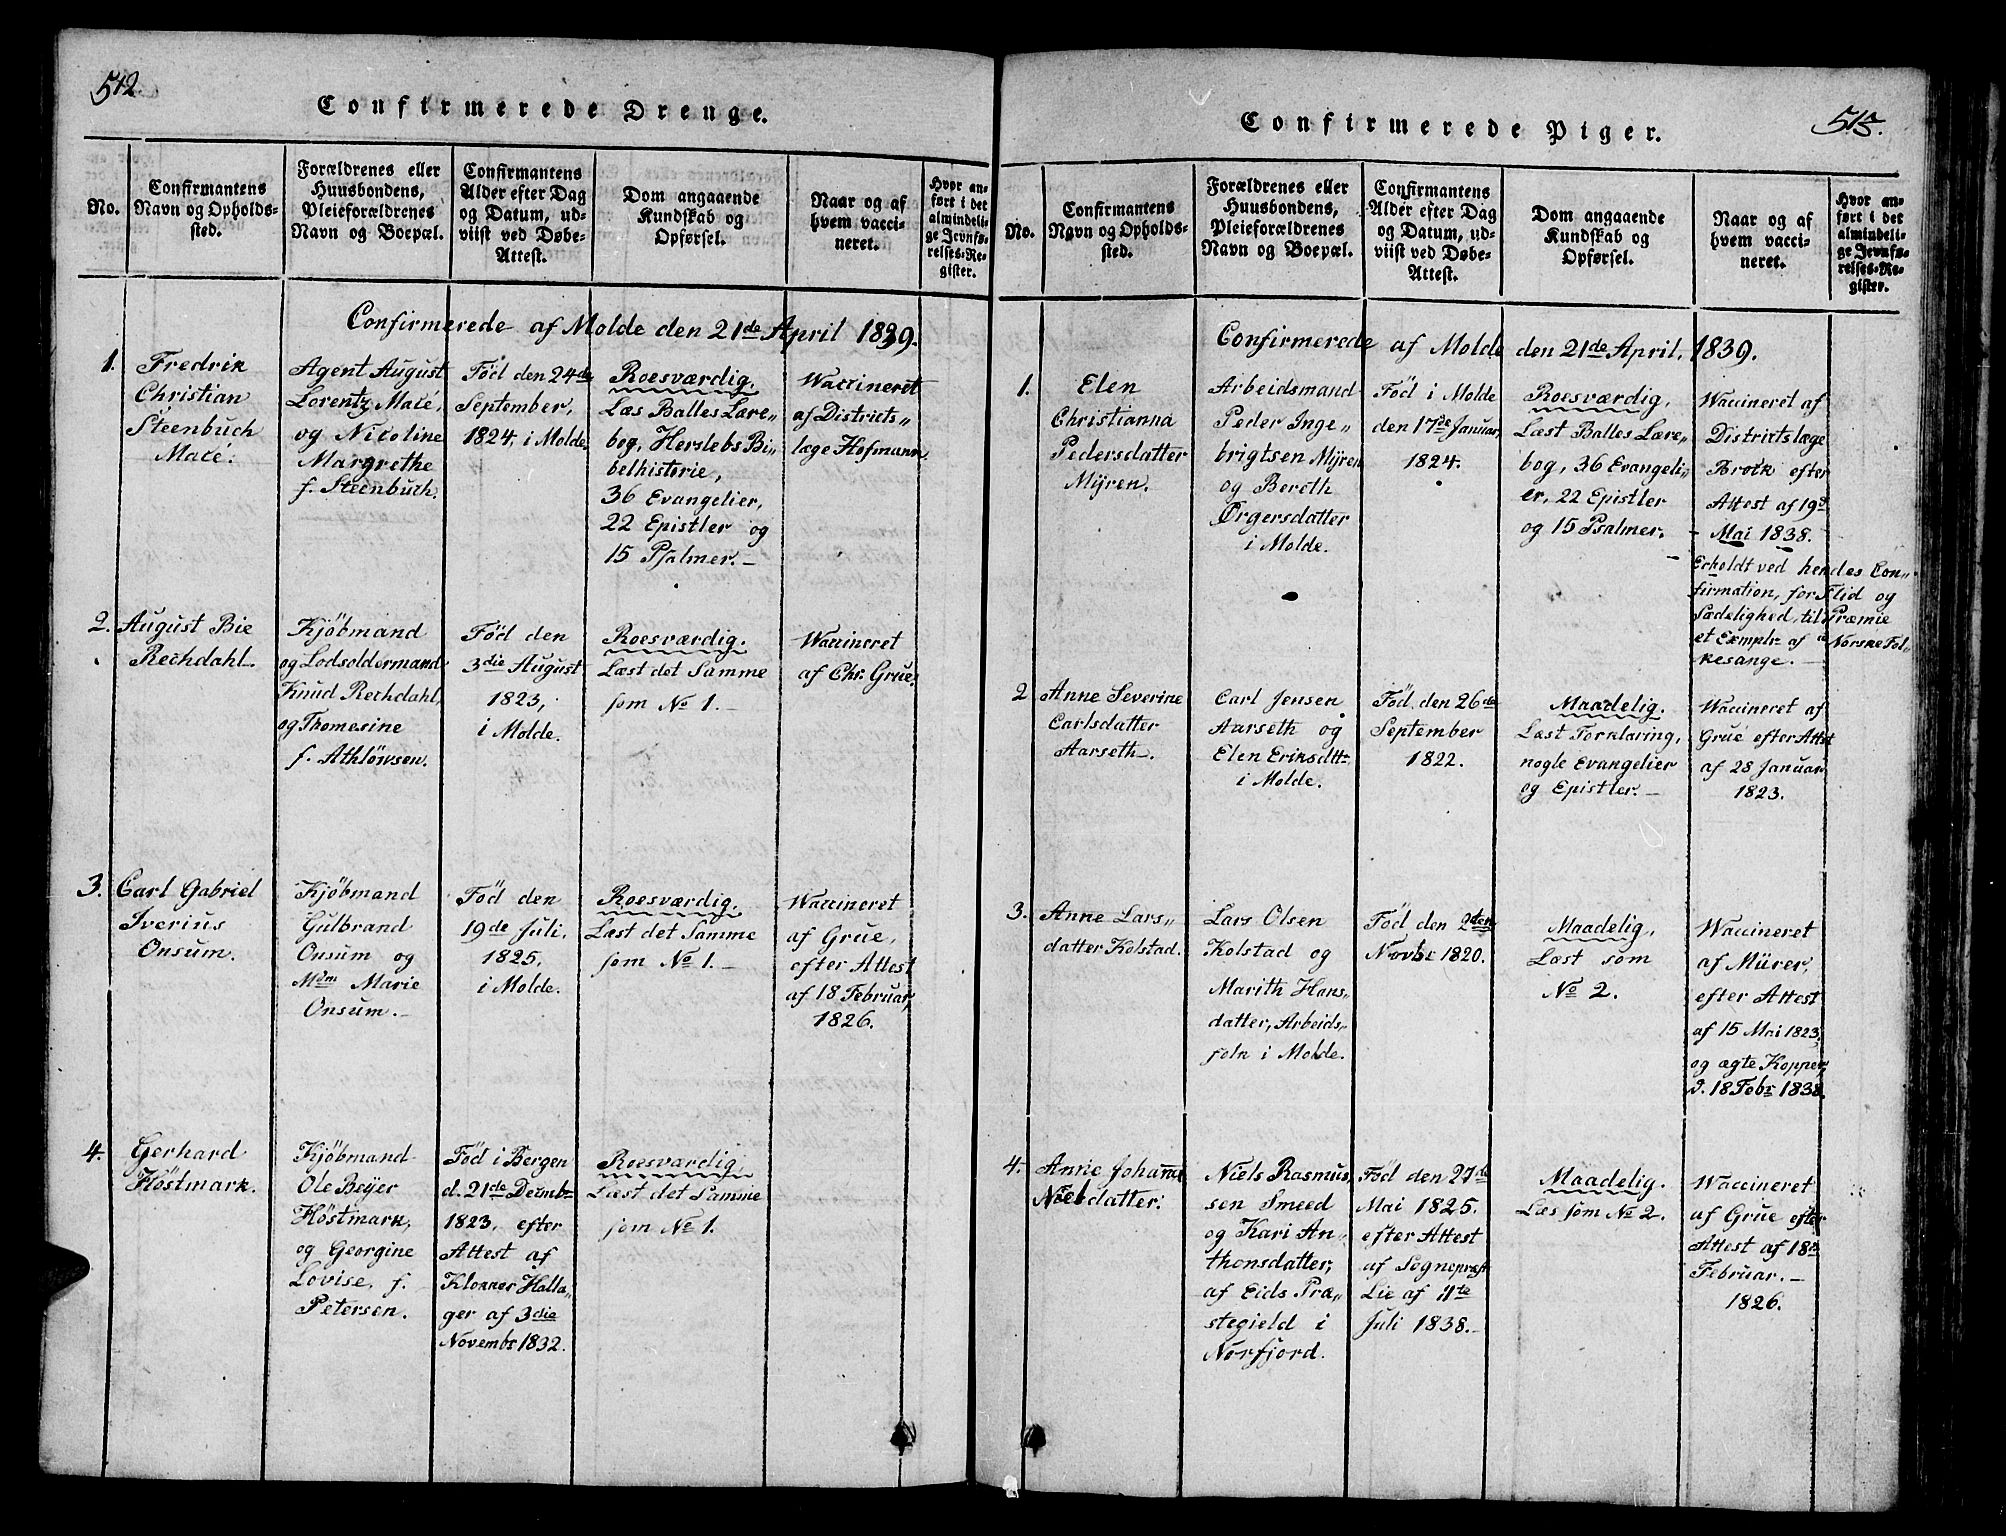 512.
Confirmerede Drenge.
No.
Confirmantens
Navn og Opholds-
sted.
Forældrenes eller
Huusbondens,
Pleieforældrenes
Navn og Boepæl.
Confirmantens
Alder efter Dag
og Datum, ud-
viist ved Døbe-
Attest.
Dom angaaende
Kundskab og
Opførsel.
Naar og af
hvem vacci-
neret.
Hvor an-
ført i det
almindeli-
ge Jevnfø-
relses-Re-
gister.
Confirmerede af Molde den 21de April 1839.
1.
Fredrik
Christian
Steenbuch
Mate.
Agent August
Lorentz Maté,
og Nicoline
Margrethe
f. Steenbuch.
Fød den 24de
September,
1824, i Molde.
Roesværdig.
Læs Balles Lære-
bog, Herslebs Bi-
belhistorie,
36 Evangelier,
22 Epistler og
15 Psalmer.-
Waccineret
af Districts„
læge Hofmann.
2.
August Bie
Rechdahl.
Kjöbmand
og Lodsoldermand
Knud Rechdahl,
og Thomesine
f. Athlöwsen.
Fød den
3die August
1823,
i Molde.
Roesværdig.
Læst det Samme
som No 1.-
Waccineret
af Chr. Grue.
3.
Carl Gabriel
Iverius
Onsum.
Kjöbmand
Gulbrand
Onsum og
Mdm Marie
Onsum.-
Fød den
19de Juli,
1825,
i Molde.
Roesværdig.
Læst det Samme
som No 1.-
Waccineret
af Grue,
efter Attest
af 18 Februar,
1826.
4.
Gerhard
Höstmark.
Kjöbmand
Ole Beijer
Höstmark,
og Georgine
Lovise, f.
Petersen.
Fød i Bergen
d. 21de Decmb=
1823, efter
Attest af
Klokker Halla„
ger af 3die
Novembr 1832.
Roesværdig
Læst det Samme
som No 1.
513.
Confirmerede Piger.
No.
Confirmantens
Navn og Opholds-
sted.
Forældrenes eller
Huusbondens,
Pleieforældrenes
Navn og Boepæl.
Confirmantens
Alder efter Dag
og Datum, ud-
viist ved Døbe-
Attest.
Dom angaaende
Kundskab og
Opførsel.
Naar og af
hvem vacci-
neret.
Hvor an-
ført i det
almindeli-
ge Jevnfø-
relses-Re-
gister.
Confirmerede af Molde den 21de April, 1839.
1.
Elen
Christianna
Pedersdatter
Mijren.
Arbeidsmand
Peder Inge„
brigtsen Mijren
og Bereth
Örgersdatter
i Molde.
Fød i Molde
den 17de Januar,
1824.
Roesværdig.
Læst Balles Lære„
bog, 36 Evangeli„
er, 22 Epistler
og 15 Psalmer.
-
Waccineret af
Districtslæge
Brock efter
Attest af 19d
- Mai 1838. -
Erholdt ved hendes Con„
firmation, for Flid og
Sædelighed, til Præmie
et Exmplr af "Norske Fol„
kesange.-
2
Anne Severine
Carlsdatter
Aarseth.
Carl Jensen
Aarseth og
Elen Eriksdtt=
i Molde.
Fød, den 26de
September
1822.
Maadelig.
Læst Forklaring,
nogle Evangelier
og Epistler.-
Waccineret af
Grue efter Attst
af 28 Januar
1823.
3.
Anne Lars„
datter Kolstad.
Lars Olsen
Kolstad og
Marith Hans„
datter, Arbeids„
foln i Molde.
Fød, den 2den
Novbr 1820.
Maadelig.
Læst som
No 2.
Waccineret
af Mürer,
efter Attest
af 15 Mai 1823,
og ægte Kopper,
d. 18 Febr 1838.
4.
Anne Johanne
Nielsdatter.
Niels Rasmus„
sen Smeed
og Kari An„
thonsdatter,
af Eids Præ„
stegield i
Norfjord.
Fød den 27de
Mai 1825.
efter Attest
af Sognepræst
Lie af 11te
Juli 1838.-
Maadelig.
Læs som No 2.
Waccineret
af Grue efter
Attest af 18de
Februar.-
1826.